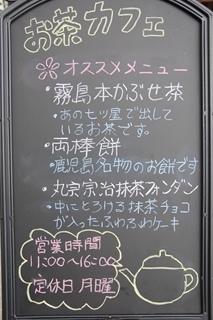 お茶カフェ
オススメメニュー
・霧島本かぶせ茶
・あの七ツ屋で出して
いるお茶です。
・両棒餅
・鹿児島名物のお餅です
・丸宗宗治抹茶フォンダン
・中にとろける抹茶チョコ
が入ったふわふわケーキ
営業時間
11:00~16:00
定休日 月曜